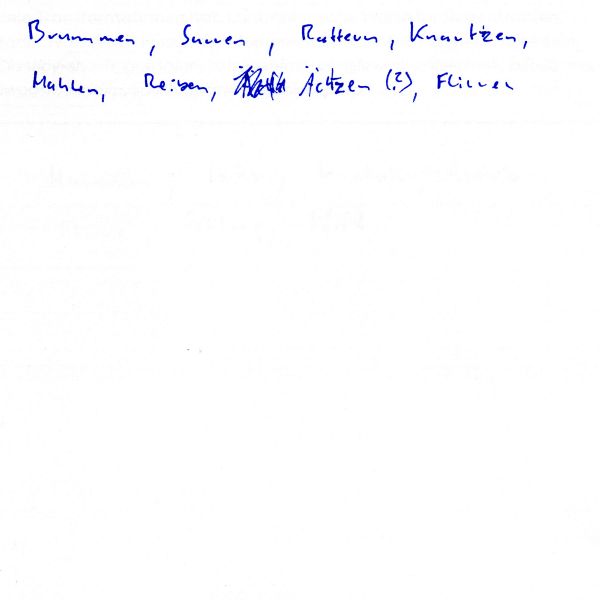 Brummen, Surren, Rattern, Knartzen,
Mahlen, Reiben, Ächzen (?), Flirren